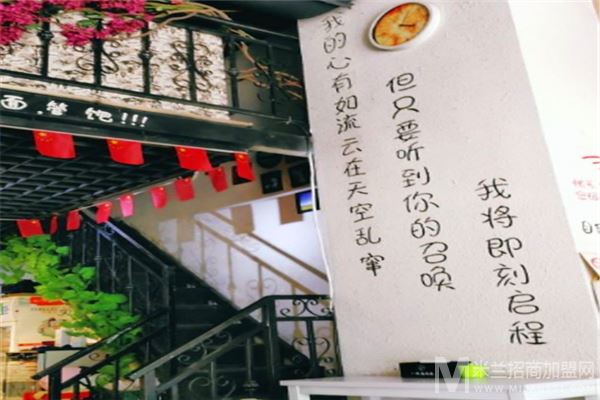 面.管饱!!!
我的心有如流云在天空乱窜
但只要听到你的召唤
我将即刻启程
米兰招商加盟网